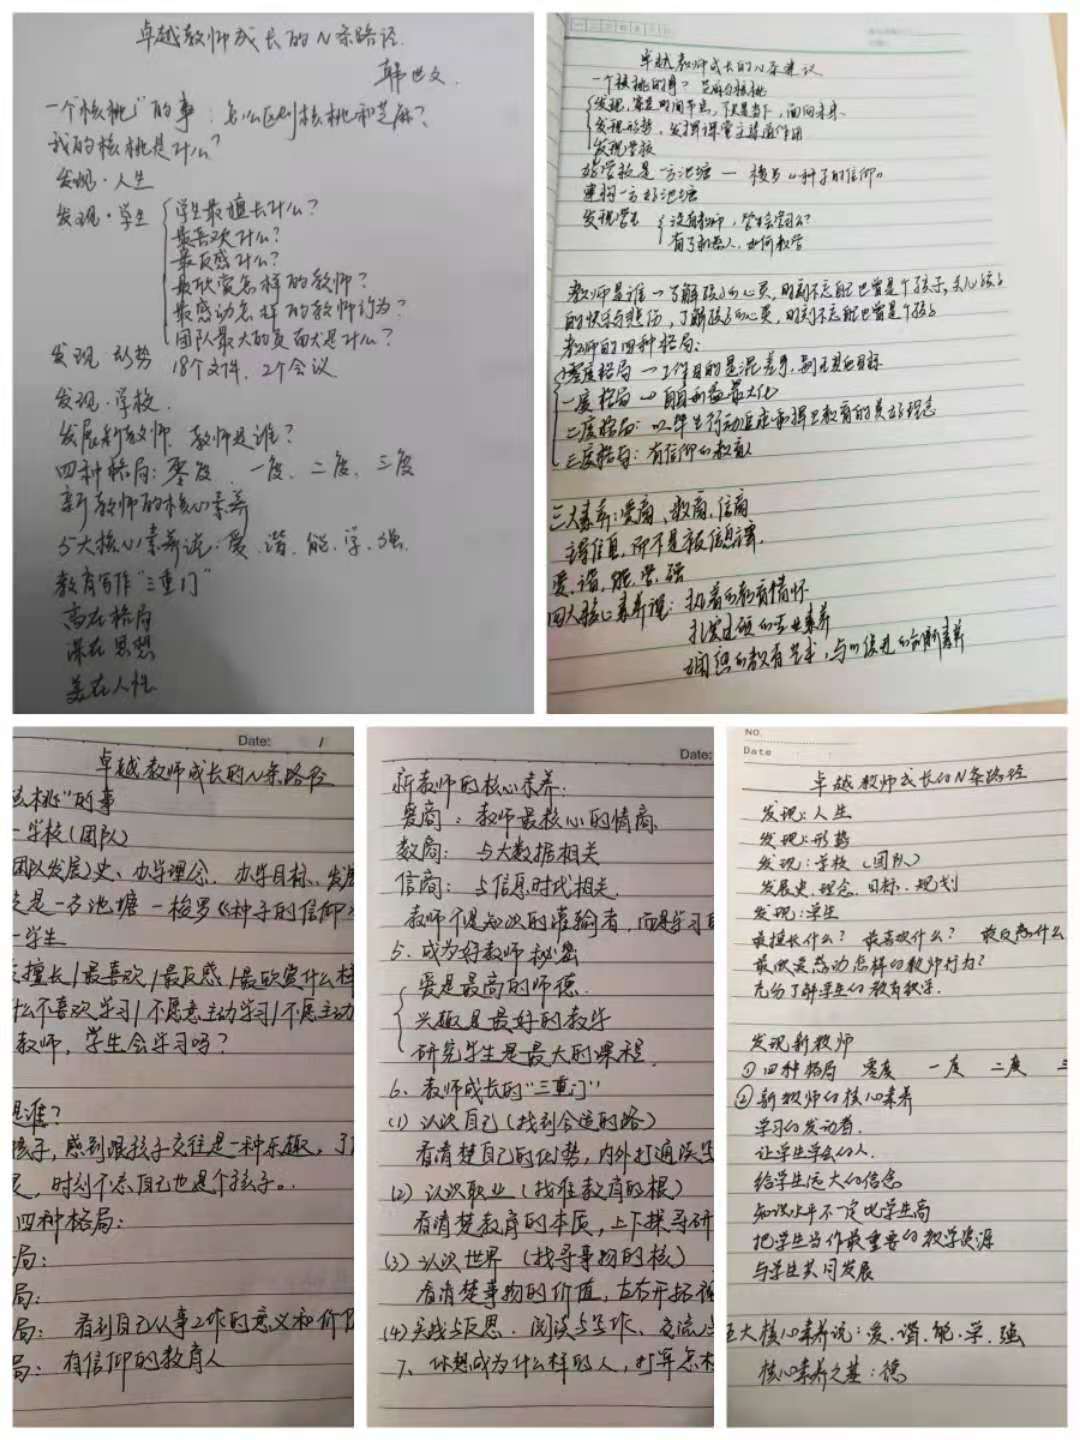 卓越教师成长的N条路径.
韩世文.
一个"核桃"的事：怎么区别核桃和芝麻？
我的核桃是什么？
发现·人生
发现·学生
学生最擅长什么？
最喜欢什么？
最反感什么？
最欣赏怎样的教师？
最感动怎样的教师行为？
团队最大的负面是什么？
发现·形势 18个文件、2个会议
发现·学校.
发展新教师 教师是谁？
四种格局：零度、一度、二度、三度
新教师的核心素养
5大核心素养说：爱.谐.能.学.强.
教育写作"三重门"
高在格局
深在思想
美在人性
卓越教师成长的N条建议
一个核桃的事？芝麻与核桃
发现形势，发挥课堂主渠道作用
发现学校
好学校是一方池塘 — 梭罗《种子的信仰》
建构一方好池塘
发现学生
没有教师，学生会学习么？
有了机器人，如何教学
教师是谁→了解孩子的心灵，时刻不忘自己也曾是个孩子，关心孩子
的快乐与悲伤，了解孩子的心灵，时刻不忘自己也曾是个孩子
教师的四种格局：
零度格局→工作目的是混差事，别无其他目标
一度格局→自身利益最大化
三度格局：有信仰的教育人
三大素养：爱商、数商、信商
爱.谐.能.学.强
四大核心素养说：执着的教育情怀
扎实过硬的专业素养
Date: /
卓越教师成长的N条路径
核桃"的事
-学校(团队)
团队发展)史、办学理念、办学目标、发展
是一方池塘 — 梭罗《种子的信仰》
-学生
擅长/最喜欢/最反感/最欣赏什么样
什么不喜欢学习/不愿意主动学习/不愿主动
教师，学生会学习吗？
是谁？
孩子，感到跟孩子交往是一种乐趣，了
灵，时刻不忘自己也是个孩子。
四种格局：
局：
局：
局：看到自己从事工作的意义和价值
局：有信仰的教育人
Date:
新教师的核心素养：
爱商：教师最核心的情商.
数商：与大数据相关
信商：与信息时代相关.
教师不是知识的灌输者，而是学习的
5.成为好教师秘密
爱是最高的师德.
兴趣是最好的教学
研究学生是最大的课程.
6.教师成长的"三重门"
(1)认识自己(找到合适的路)
看清楚自己的优势，内外打通误
(2)认识职业(找准教育的根)
看清楚教育的本质，上下探寻研
(3)认识世界(找寻事物的核)
看清楚事物的价值，左右开拓
(4)实践与反思、阅读与写作、交流
7、你想成为什么样的人，打算怎样
NO.
Date
卓越教师成长的N条路径
发现：人生
发现：形势
发现：学校(团队)
发展史.理念.目标.规划
发现：学生
最擅长什么？最喜欢什么？最反感什么
最欣赏感动怎样的教师行为？
充分了解学生的教育教学.
发现新教师
①四种格局 零度 一度 二度 三
②新教师的核心素养
学习的发动者.
让学生学会的人.
给学生远大的信念
知识水平不一定比学生高
把学生当作最重要的教学资源
与学生共同发展
五大核心素养说：爱.谐.能.学.强
核心素养之基：德